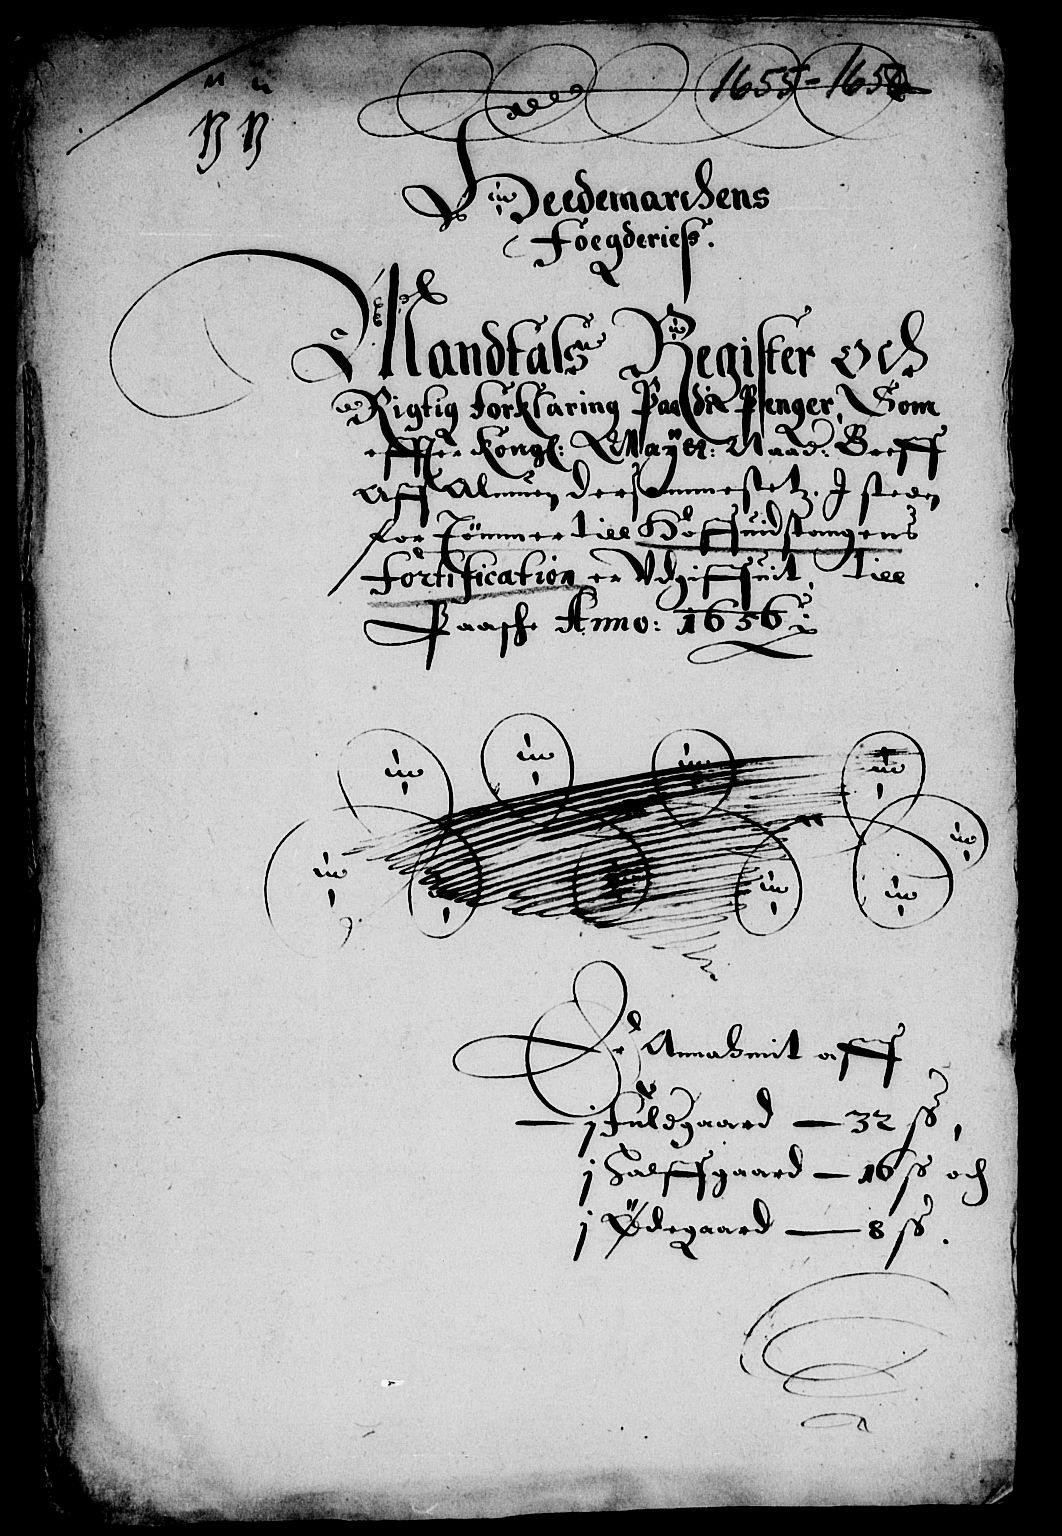 1655-165
Heedemarchens
Foegderies.
Mandtals Register och
Rigtig forklaring Paa di Penger Som
effter Kongl: Mayst: Naad: Breff
Aff Almuen der sammestetz, J steden
for Tömmer till Hoffuidstangens
Fortification er Udgiffuit, till
Paasche Anno: 1656
Er Annahmit aff
j Fuldgaard — 32 ss,
j Halffgaard — 16 ss och
j Ødegaard — 8 ss.